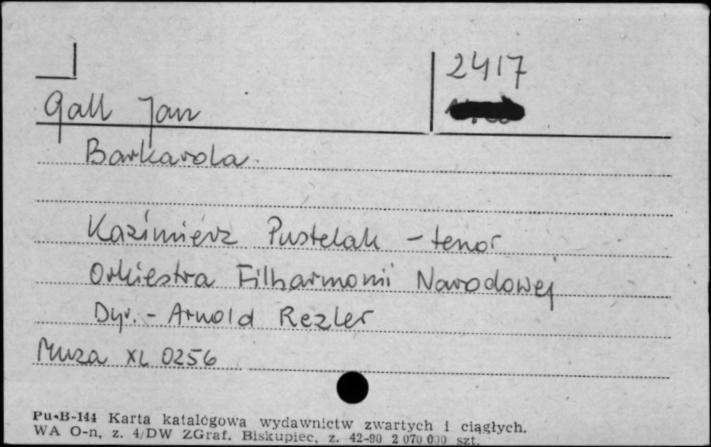 2417
Gall Jan
Barkarola.
Kazimierz Pustelak - tenor
Orkiestra Filharmonii Narodowej
Dyr. - Arnold Rezler
Muza XL 0256
Pu-B-144 Karta katalogowa wydawnictw zwartych i ciągłych.
WA O-n, z. 4/DW ZGraf. Biskupiec, z. 42-90 2 070 000 szt.